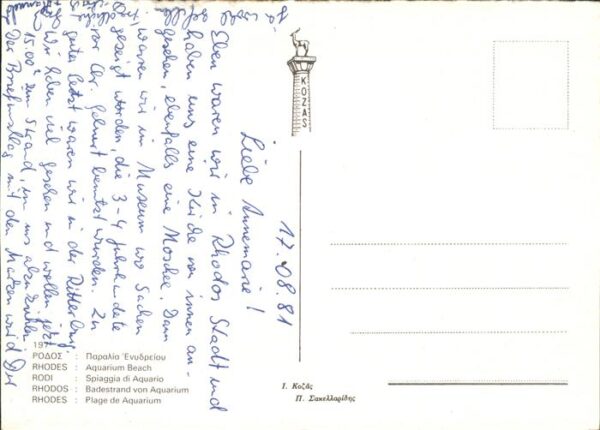 17.08.81
Liebe Annemarie!
Eben waren wir in Rhodos Stadt und
haben uns eine Kirche von innen an-
gesehen, ebenfalls eine Moschee. Dann
waren wir im Museum wo Sachen
gezeigt wurden, die 3-4 Jahrhunderte
vor Chr. Geburt benutzt wurden. Zu
guter Letzt waren wir in der Ritterburg
Wir haben viel gesehen und wollen jetzt
1500 zum Strand, um uns abzukühlen
Der Briefumschlag mit den Marken wird Dir
KOZAS
197
ΡΟΔΟΣ : Παραλία Ἐνυδρείου
RHODES : Aquarium Beach
RODI : Spiaggia di Aquario
RHODOS : Badestrand von Aquarium
RHODES : Plage de Aquarium
Ι. Κοζᾶς
Π. Σακελλαρίδης